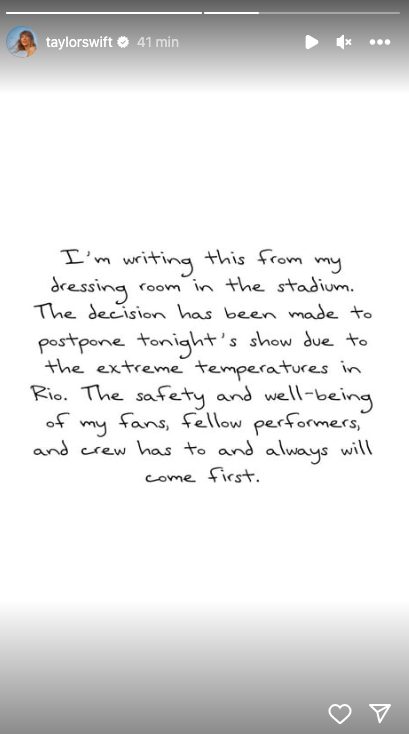 taylorswift 41 min
I'm writing this from my
dressing room in the stadium.
The decision has been made to
postpone tonight's show due to
the extreme temperatures in
Rio. The safety and well-being
of my fans, fellow performers,
and crew has to and always will
come first.